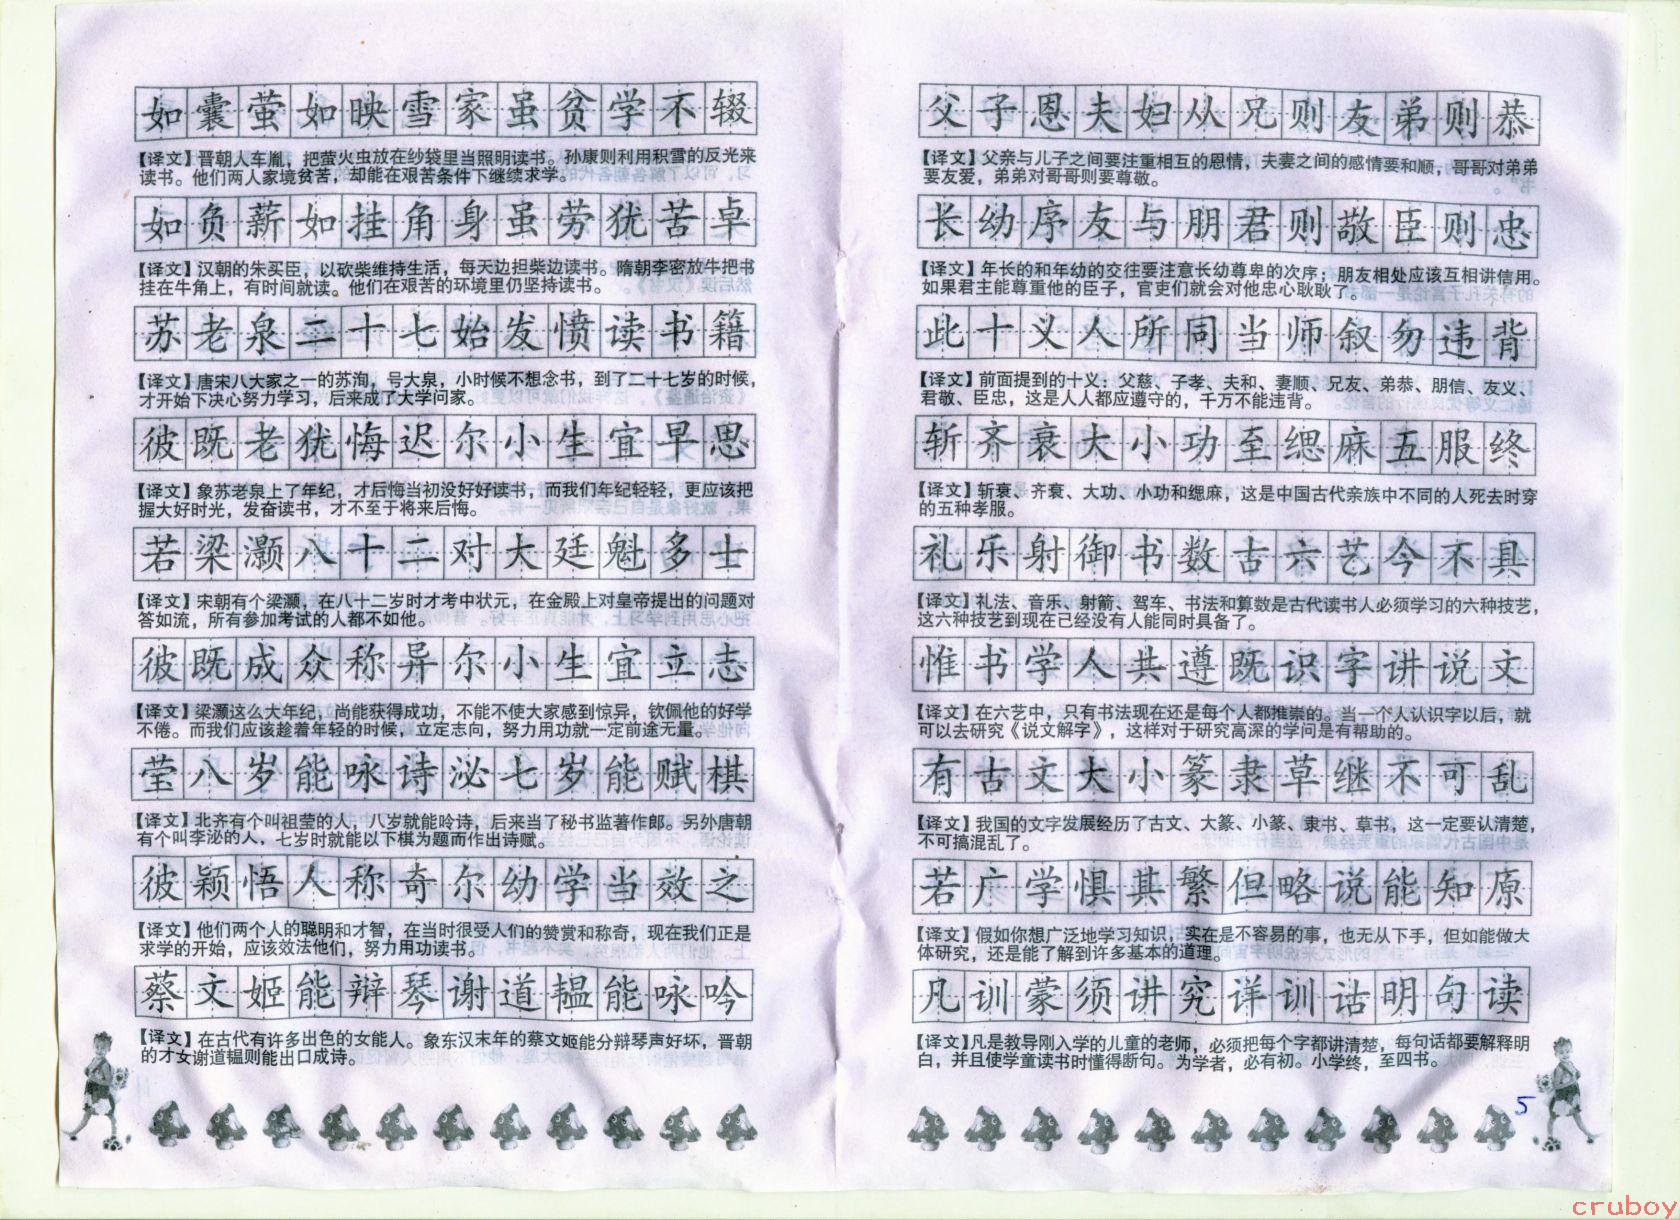 如囊萤如映雪家虽贫学不辍
【译文】晋朝人车胤，把萤火虫放在纱袋里当照明读书。孙康则利用积雪的反光来
读书。他们两人家境贫苦，却能在艰苦条件下继续求学。
如负薪如挂角身虽劳犹苦卓
【译文】汉朝的朱买臣，以砍柴维持生活，每天边担柴边读书。隋朝李密放牛把书
挂在牛角上，有时间就读。他们在艰苦的环境里仍坚持读书。
苏老泉二十七始发愤读书籍
【译文】唐宋八大家之一的苏洵，号大泉，小时候不想念书，到了二十七岁的时候，
才开始下决心努力学习，后来成了大学问家。
彼既老犹悔迟尔小生宜早思
【译文】象苏老泉上了年纪，才后悔当初没好好读书，而我们年纪轻轻，更应该把
握大好时光，发奋读书，才不至于将来后悔。
若梁灏八十二对大廷魁多士
【译文】宋朝有个梁灏，在八十二岁时才考中状元，在金殿上对皇帝提出的问题对
答如流，所有参加考试的人都不如他。
彼既成众称异尔小生宜立志
【译文】梁灏这么大年纪，尚能获得成功，不能不使大家感到惊异，钦佩他的好学
不倦。而我们应该趁着年轻的时候，立定志向，努力用功就一定前途无量。
莹八岁能咏诗泌七岁能赋棋
【译文】北齐有个叫祖莹的人，八岁就能吟诗，后来当了秘书监著作郎。另外唐朝
有个叫李泌的人，七岁时就能以下棋为题而作出诗赋。
彼颖悟人称奇尔幼学当效之
【译文】他们两个人的聪明和才智，在当时很受人们的赞赏和称奇，现在我们正是
求学的开始，应该效法他们，努力用功读书。
蔡文姬能辩琴谢道韫能咏吟
【译文】在古代有许多出色的女能人。象东汉末年的蔡文姬能分辩琴声好坏，晋朝
的才女谢道韫则能出口成诗。
父子恩夫妇从兄则友弟则恭
【译文】父亲与儿子之间要注重相互的恩情，夫妻之间的感情要和顺，哥哥对弟弟
要友爱，弟弟对哥哥则要尊敬。
长幼序友与朋君则敬臣则忠
【译文】年长的和年幼的交往要注意长幼尊卑的次序；朋友相处应该互相讲信用。
如果君主能尊重他的臣子，官吏们就会对他忠心耿耿了。
此十义人所同当师叙勿违背
【译文】前面提到的十义：父慈、子孝、夫和、妻顺、兄友、弟恭、朋信、友义、
君敬、臣忠，这是人人都应遵守的，千万不能违背。
斩齐衰大小功至缌麻五服终
【译文】斩衰、齐衰、大功、小功和缌麻，这是中国古代亲族中不同的人死去时穿
的五种孝服。
礼乐射御书数古六艺今不具
【译文】礼法、音乐、射箭、驾车、书法和算数是古代读书人必须学习的六种技艺，
这六种技艺到现在已经没有人能同时具备了。
惟书学人共遵既识字讲说文
【译文】在六艺中，只有书法现在还是每个人都推崇的。当一个人认识字以后，就
可以去研究《说文解字》，这样对于研究高深的学问是有帮助的。
有古文大小篆隶草继不可乱
【译文】我国的文字发展经历了古文、大篆、小篆、隶书、草书，这一定要认清楚，
不可搞混乱了。
若广学惧其繁但略说能知原
【译文】假如你想广泛地学习知识，实在是不容易的事，也无从下手，但如能做大
体研究，还是能了解到许多基本的道理。
凡训蒙须讲究详训诂明句读
【译文】凡是教导刚入学的儿童的老师，必须把每个字都讲清楚，每句话都要解释明
白，并且使学童读书时懂得断句。为学者，必有初。小学终，至四书。
5
cruboy